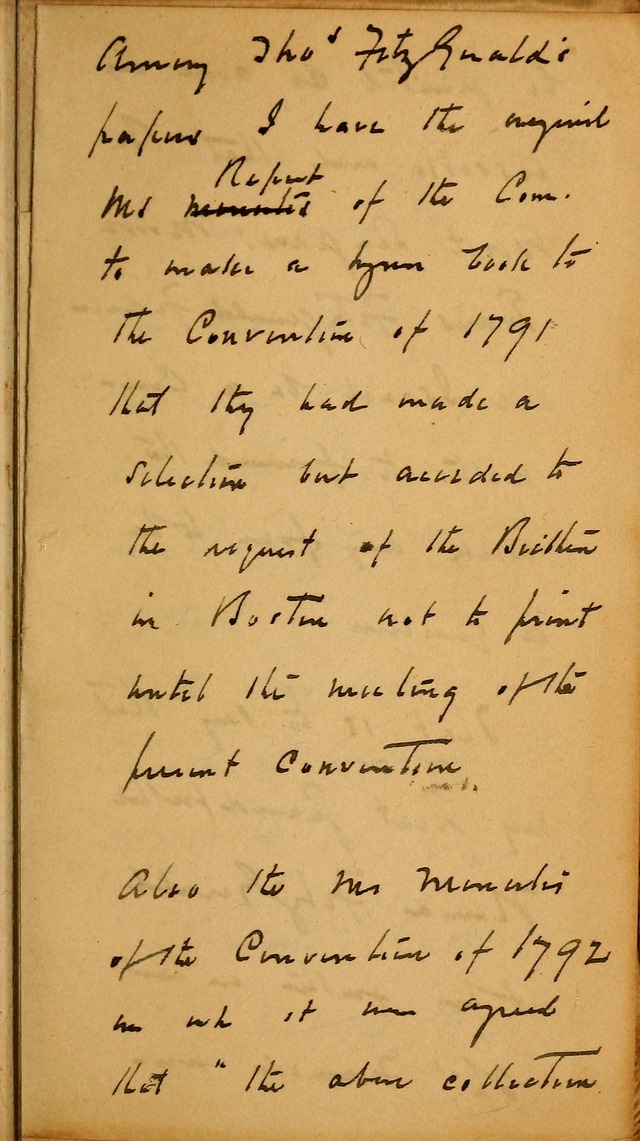 Among Thos FitzGerald's
papers I have the original
Report
Ms minutes of the Com.
to make a hymn book to
the Convention of 1791
that they had made a
selection but acceded to
the request of the Brethren
in Boston not to print
until the meeting of the
present Convention
Also the Ms Minutes
of the Convention of 1792
in wh it was agreed
that " the above collection